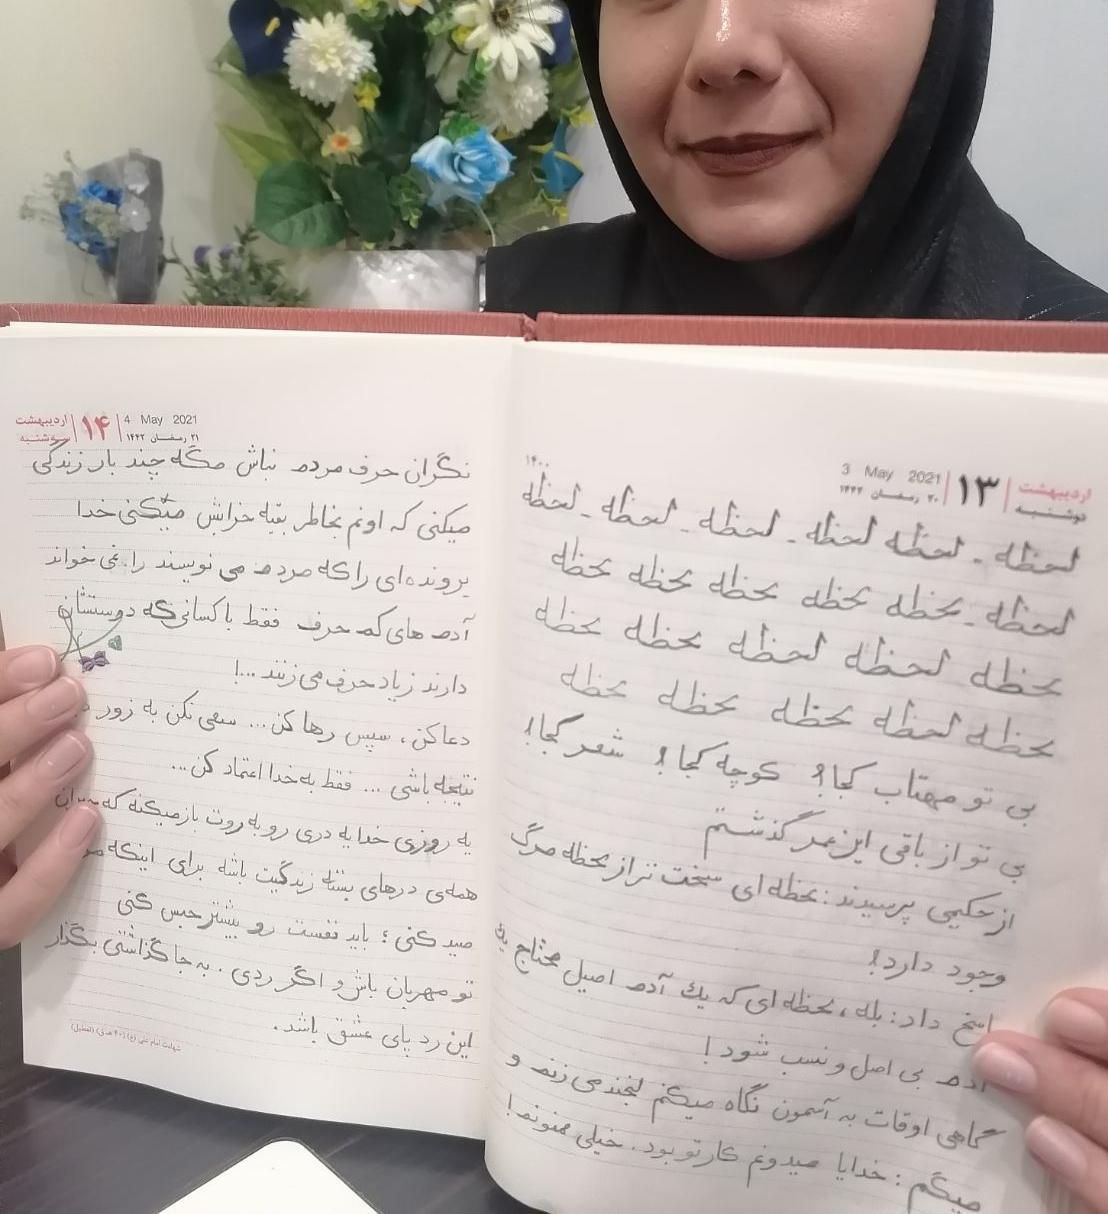 ۱۴۰۰
3 May 2021
۲۰ رمضان ۱۴۴۲
۱۳
اردیبهشت
دوشنبه
لحظه - لحظه - لحظه لحظه - لحظه - لحظه - لحظه
لحظه - لحظه لحظه لحظه لحظه لحظه
لحظه لحظه لحظه لحظه لحظه
لحظه لحظه لحظه لحظه لحظه
بی تو مهتاب کجا؟ کوچه کجا؟ شعر کجا؟
بی تو از باقی این عمر گذشتم
از حکیمی پرسیدند: لحظه ای سخت تر از لحظه مرگ
وجود دارد؟
پاسخ داد: بله، لحظه ای که یك آدم اصیل محتاج یك
آدم بی اصل و نسب شود!
گاهی اوقات به آسمون نگاه میکنم لبخند می زنم و
میگم: خدایا میدونم کار تو بود. خیلی ممنونم!
اردیبهشت
سه‌شنبه
۱۴
4 May 2021
۲۱ رمضان ۱۴۴۲
نگران حرف مردم نباش مگه چند بار زندگی
میکنی که اونم بخاطر بقیه خرابش میکنی خدا
پرونده ای را که مردم می نویسند را نمی خواند
آدم های کم حرف فقط با کسانی که دوستشان
دارند زیاد حرف می زنند ...!
دعا کن، سپس رها کن... سعی نکن به زور
نتیجه باشی ... فقط به خدا اعتماد کن...
یه روزی خدا یه دری رو به روت باز میکنه که جبران
همه‌ی درهای بسته زندگیت باشه برای اینکه
صید کنی؛ باید نفست رو بیشتر حبس کنی
تو مهربان باش و اگر ردی . به جا گذاشتی بگذار
این رد پای عشق باشد.
شهادت امام علی (ع) (۴۰ ه‍.ق) (تعطیل)